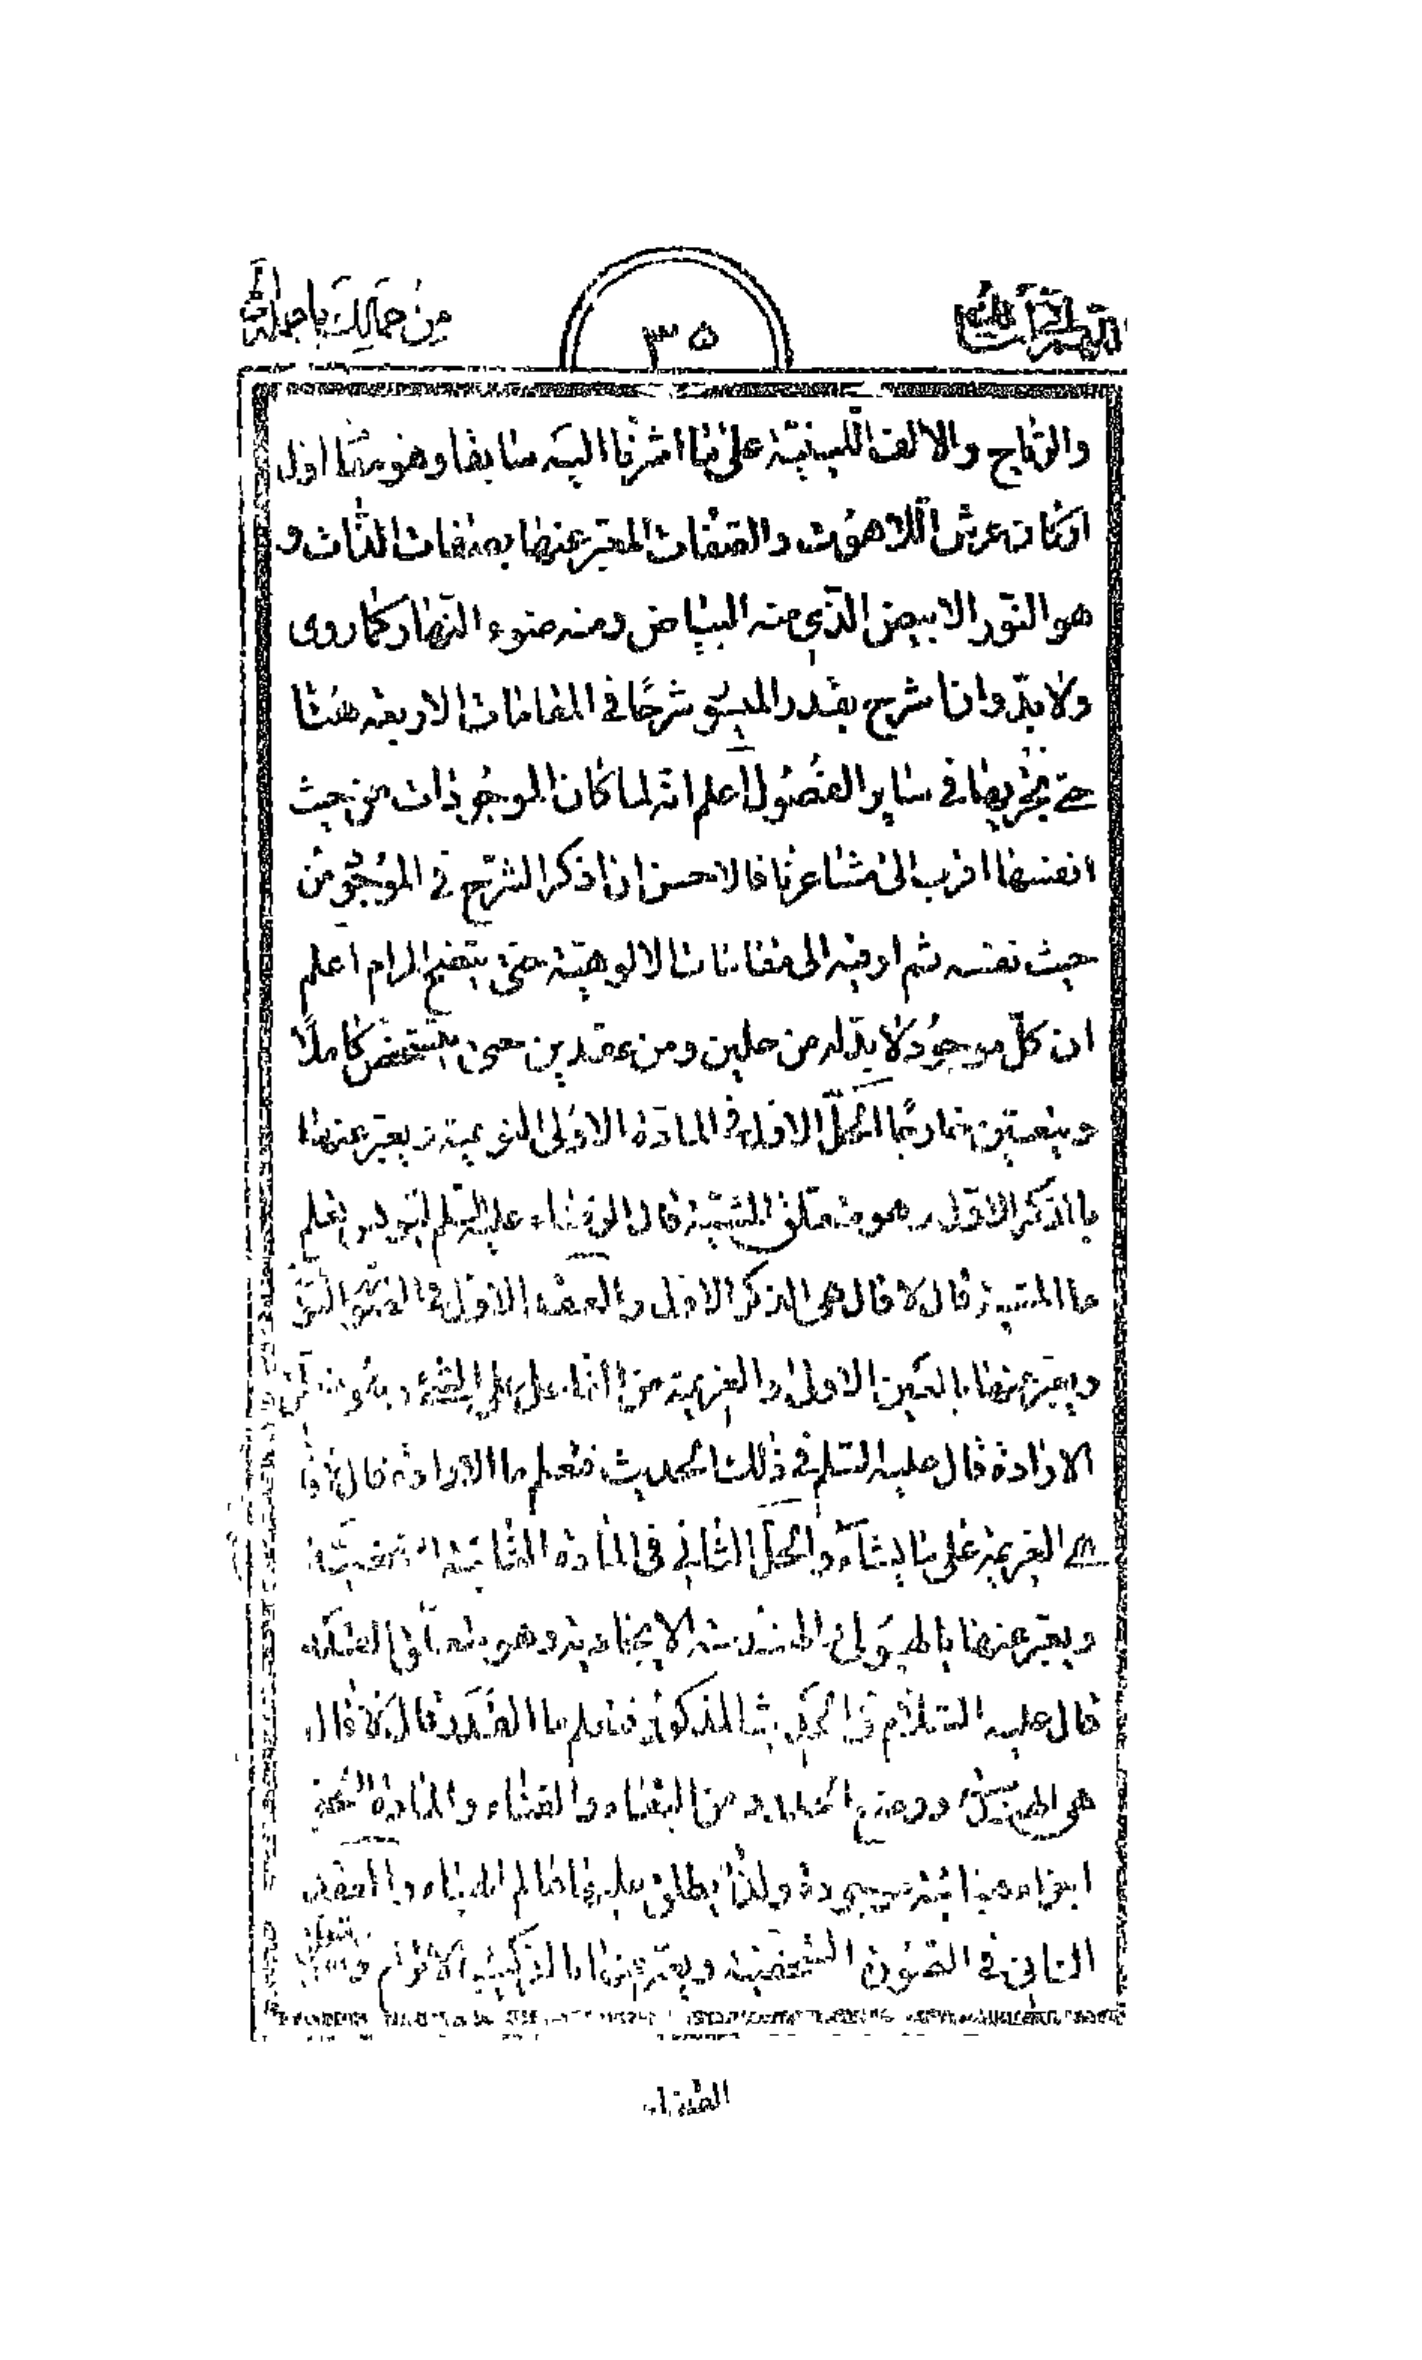 من جمالك باجمله
٣٥
والرياح والالف اللينية على ما اشرنا اليه سابقا وهو مقام اول
اركان عرش اللاهوت والصفات المعبر عنها بصفات الذات و
هو النور الابيض الذي منه البياض ومنه ضوء النهار كما روى
ولابد وان اشرح بقدر الميسور شرحًا في المقامات الاربعة هنا
حتى نجريها في ساير الفصول اعلم انه لما كان الموجودات من حيث
انفسها اقرب الى مشاعرنا فالاحسن ان اذكر الشرح في الموجود من
حيث نفسه ثم ارقيه الى مقامات الالوهية حتى يتضح المرام اعلم
ان كل موجود لابد له من حلين ومن عقدين حتى يتشخص كاملًا
ويتعين خارجًا الحل الاول في المادة الاولى النوعية ويعبر عنها
بالذكر الاول وهو متعلق المشية قال الرضاء عليه السلم ليونس تعلم
ما المشية قال لا قال هي الذكر الاول والعقد الاول في الصورة النوعية
ويعبر عنها بالتعين الاولى والعزيمة من الفاعل على الشيء
الارادة قال عليه السلم في ذلك الحديث فتعلم ما الارادة قال لا قال
هي العزيمة على ما يشاء والحل الثاني في المادة الثانية الشخصية
ويعبر عنها بالهيولى الايجادية وهو متعلق
قال عليه السلام في الحديث المذكور فتعلم ما القدر قال لا قال
هو الهندسة ووضع الحدود من البقاء والفناء والمادة التي
موجودة ولذا يطلق عليها
الثاني في الصورة الشخصية ويعبر عنها بالتركيب الالزام
القضاء